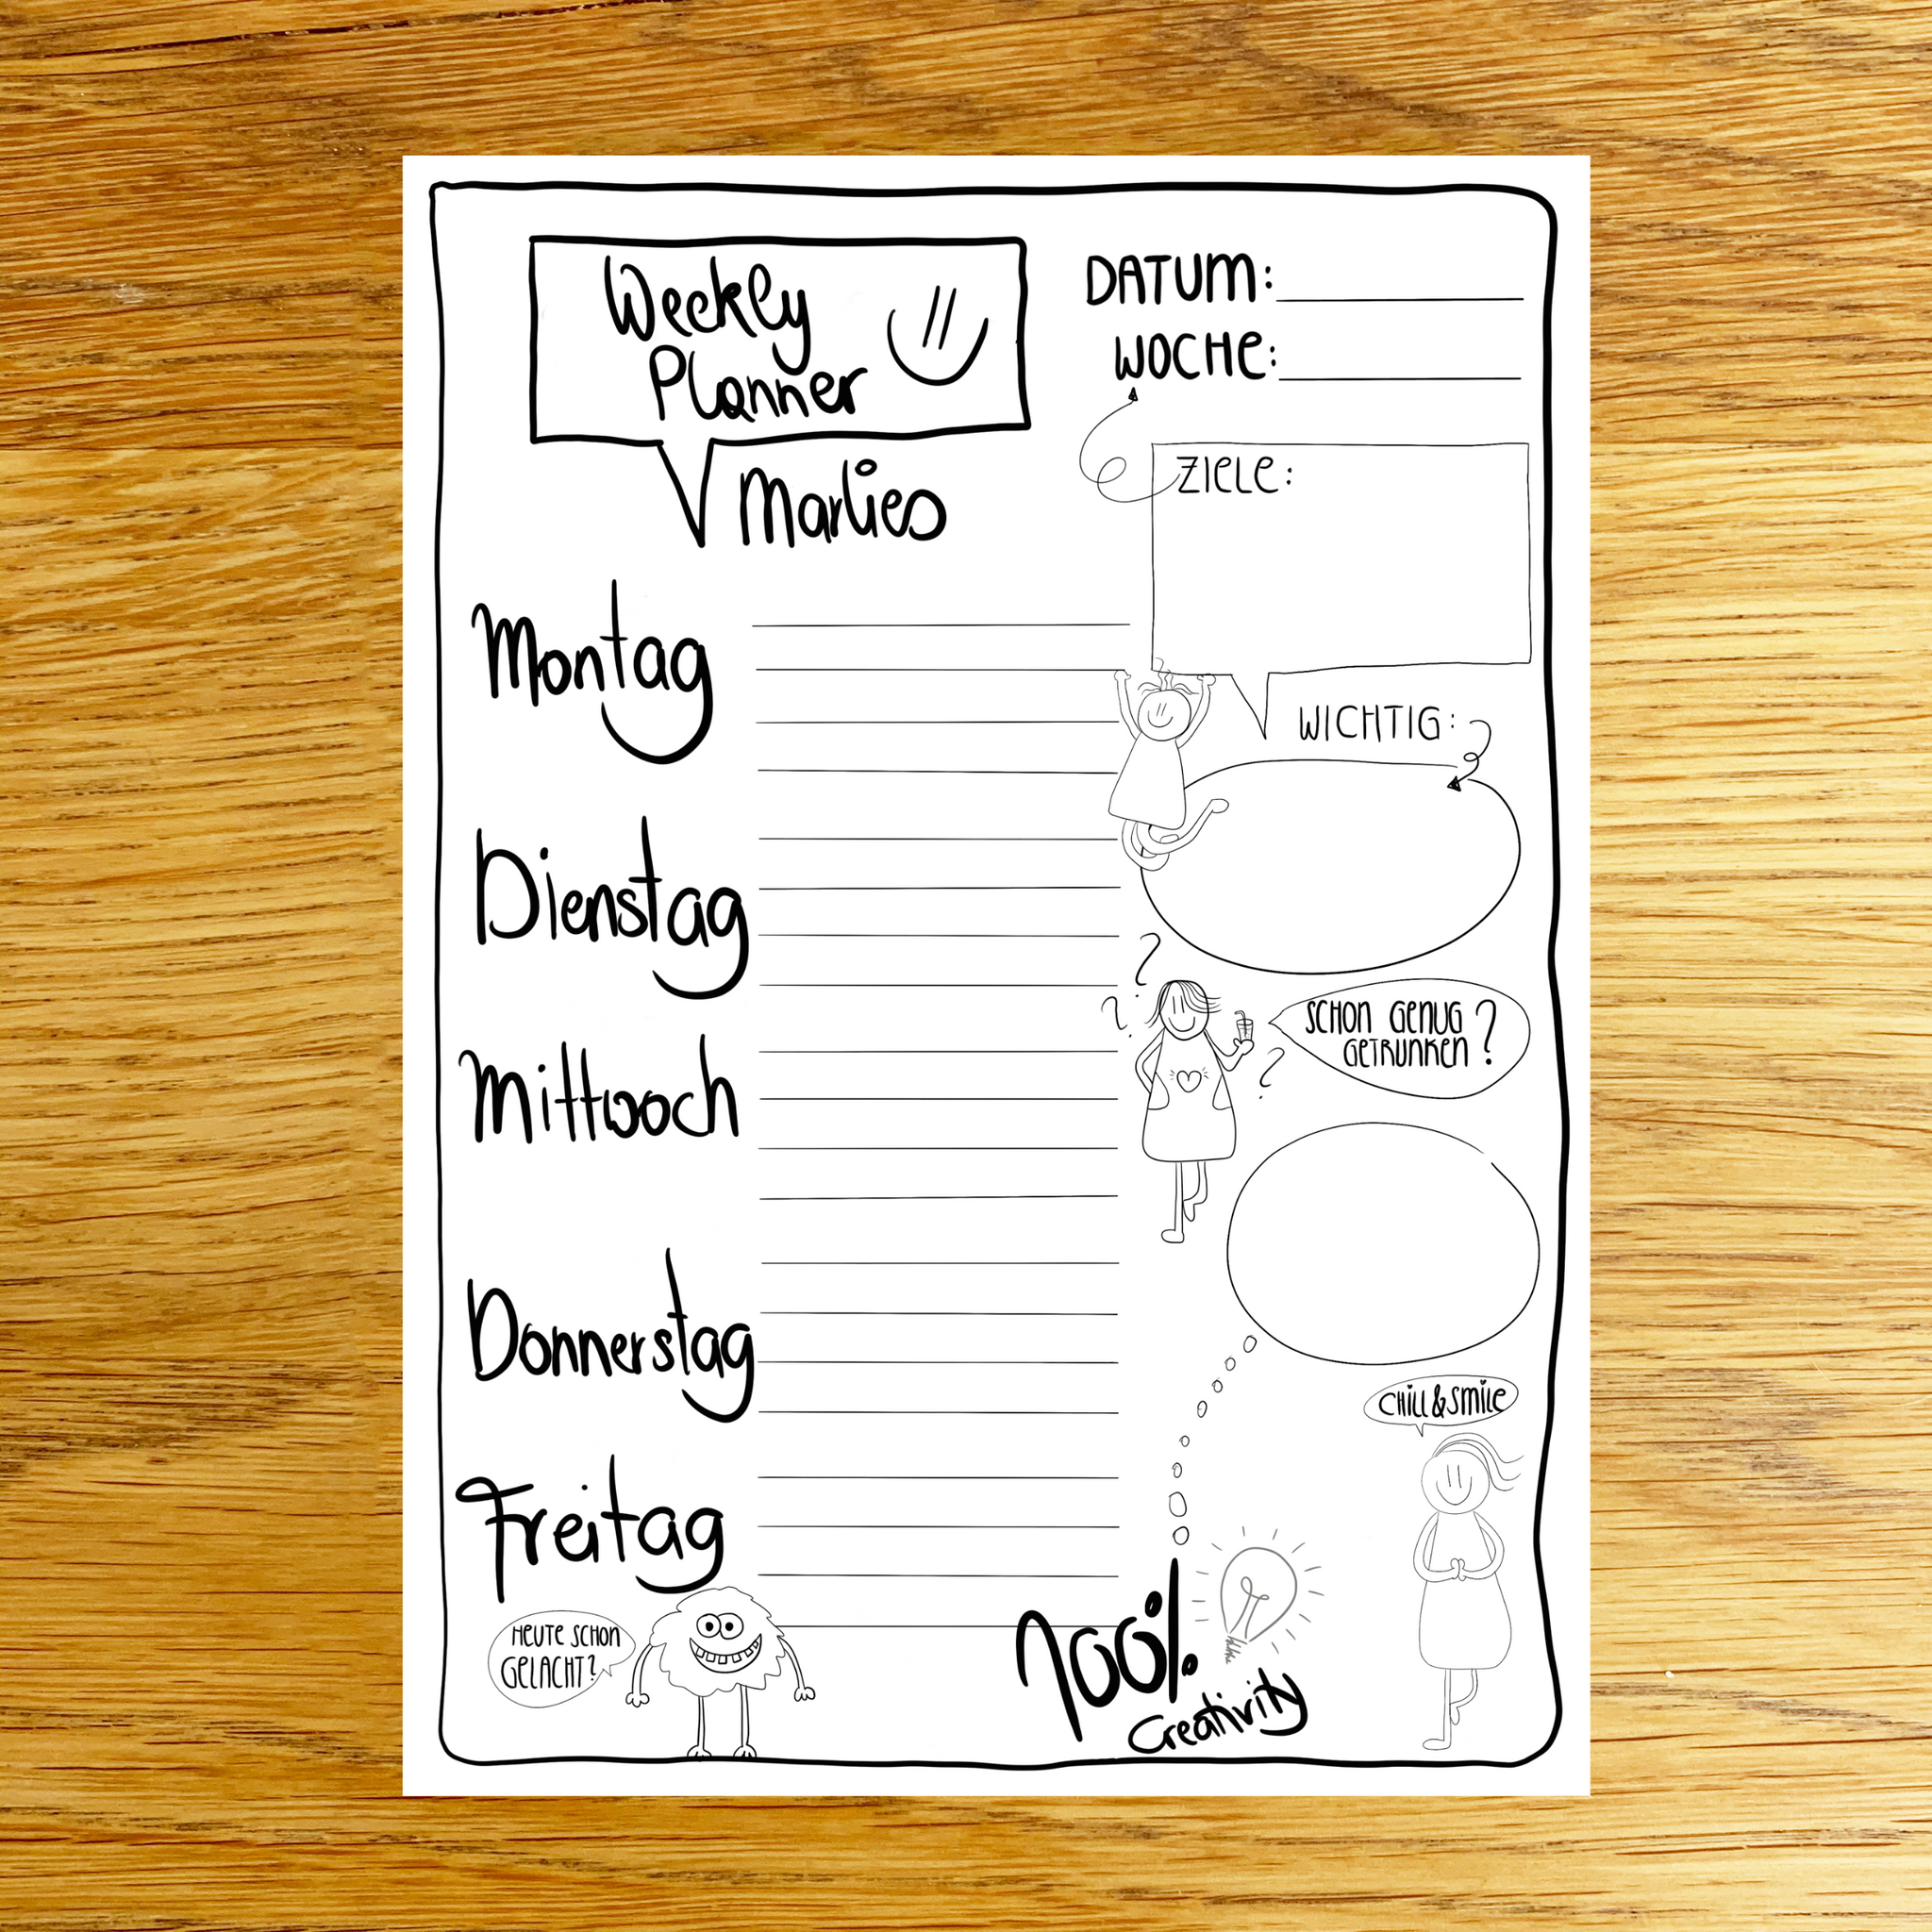 Weekly
Planner
Marlies
DATUM:
WOCHE:
ZIELE:
Montag
WICHTIG:
Dienstag
SCHON GENUG
GETRUNKEN?
Mittwoch
Donnerstag
CHILL & SMILE
Freitag
HEUTE SCHON
GELACHT?
100%
Creativity